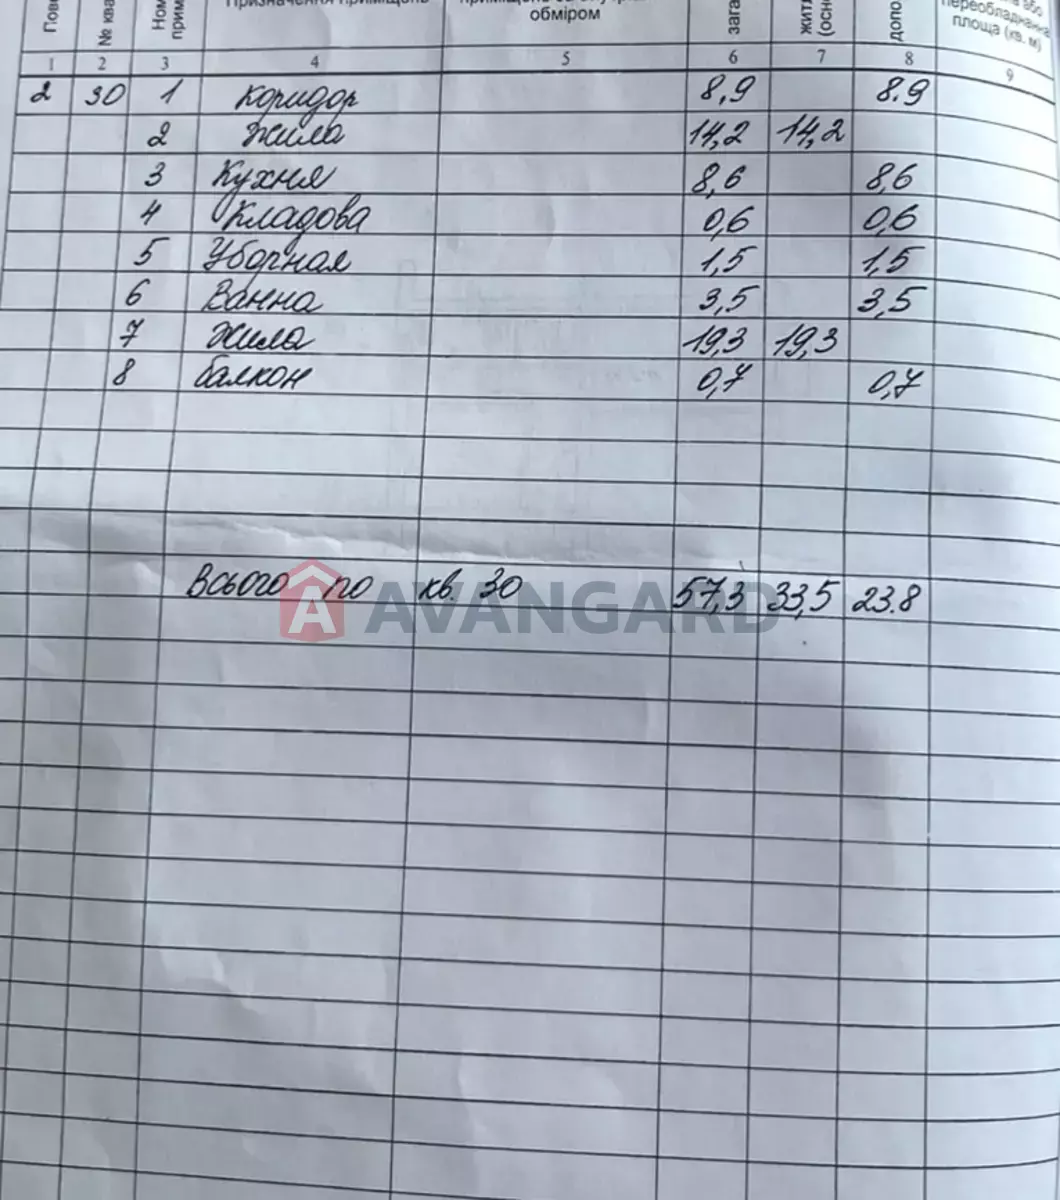 обміром
площа (кв. м)
1 2 3 4 5 6 7 8 9
2 30 1 коридор 8,9 8.9
2 жила 14,2 14,2
3 Кухня 8,6 8,6
4 Кладова 0,6 0,6
5 Уборная 1,5 1,5
6 Ванна 3,5 3,5
7 жила 19,3 19,3
8 балкон 0,7 0,7
Всього по кв. 30 57,3 33,5 23.8
AVANGARD